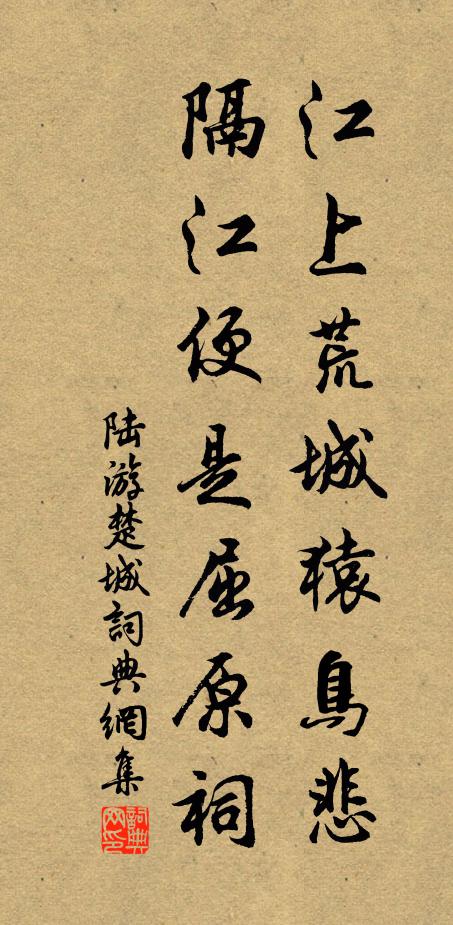 江上荒城猿鳥悲
隔江便是屈原祠
陆游楚城詞典網集
詞典
网印